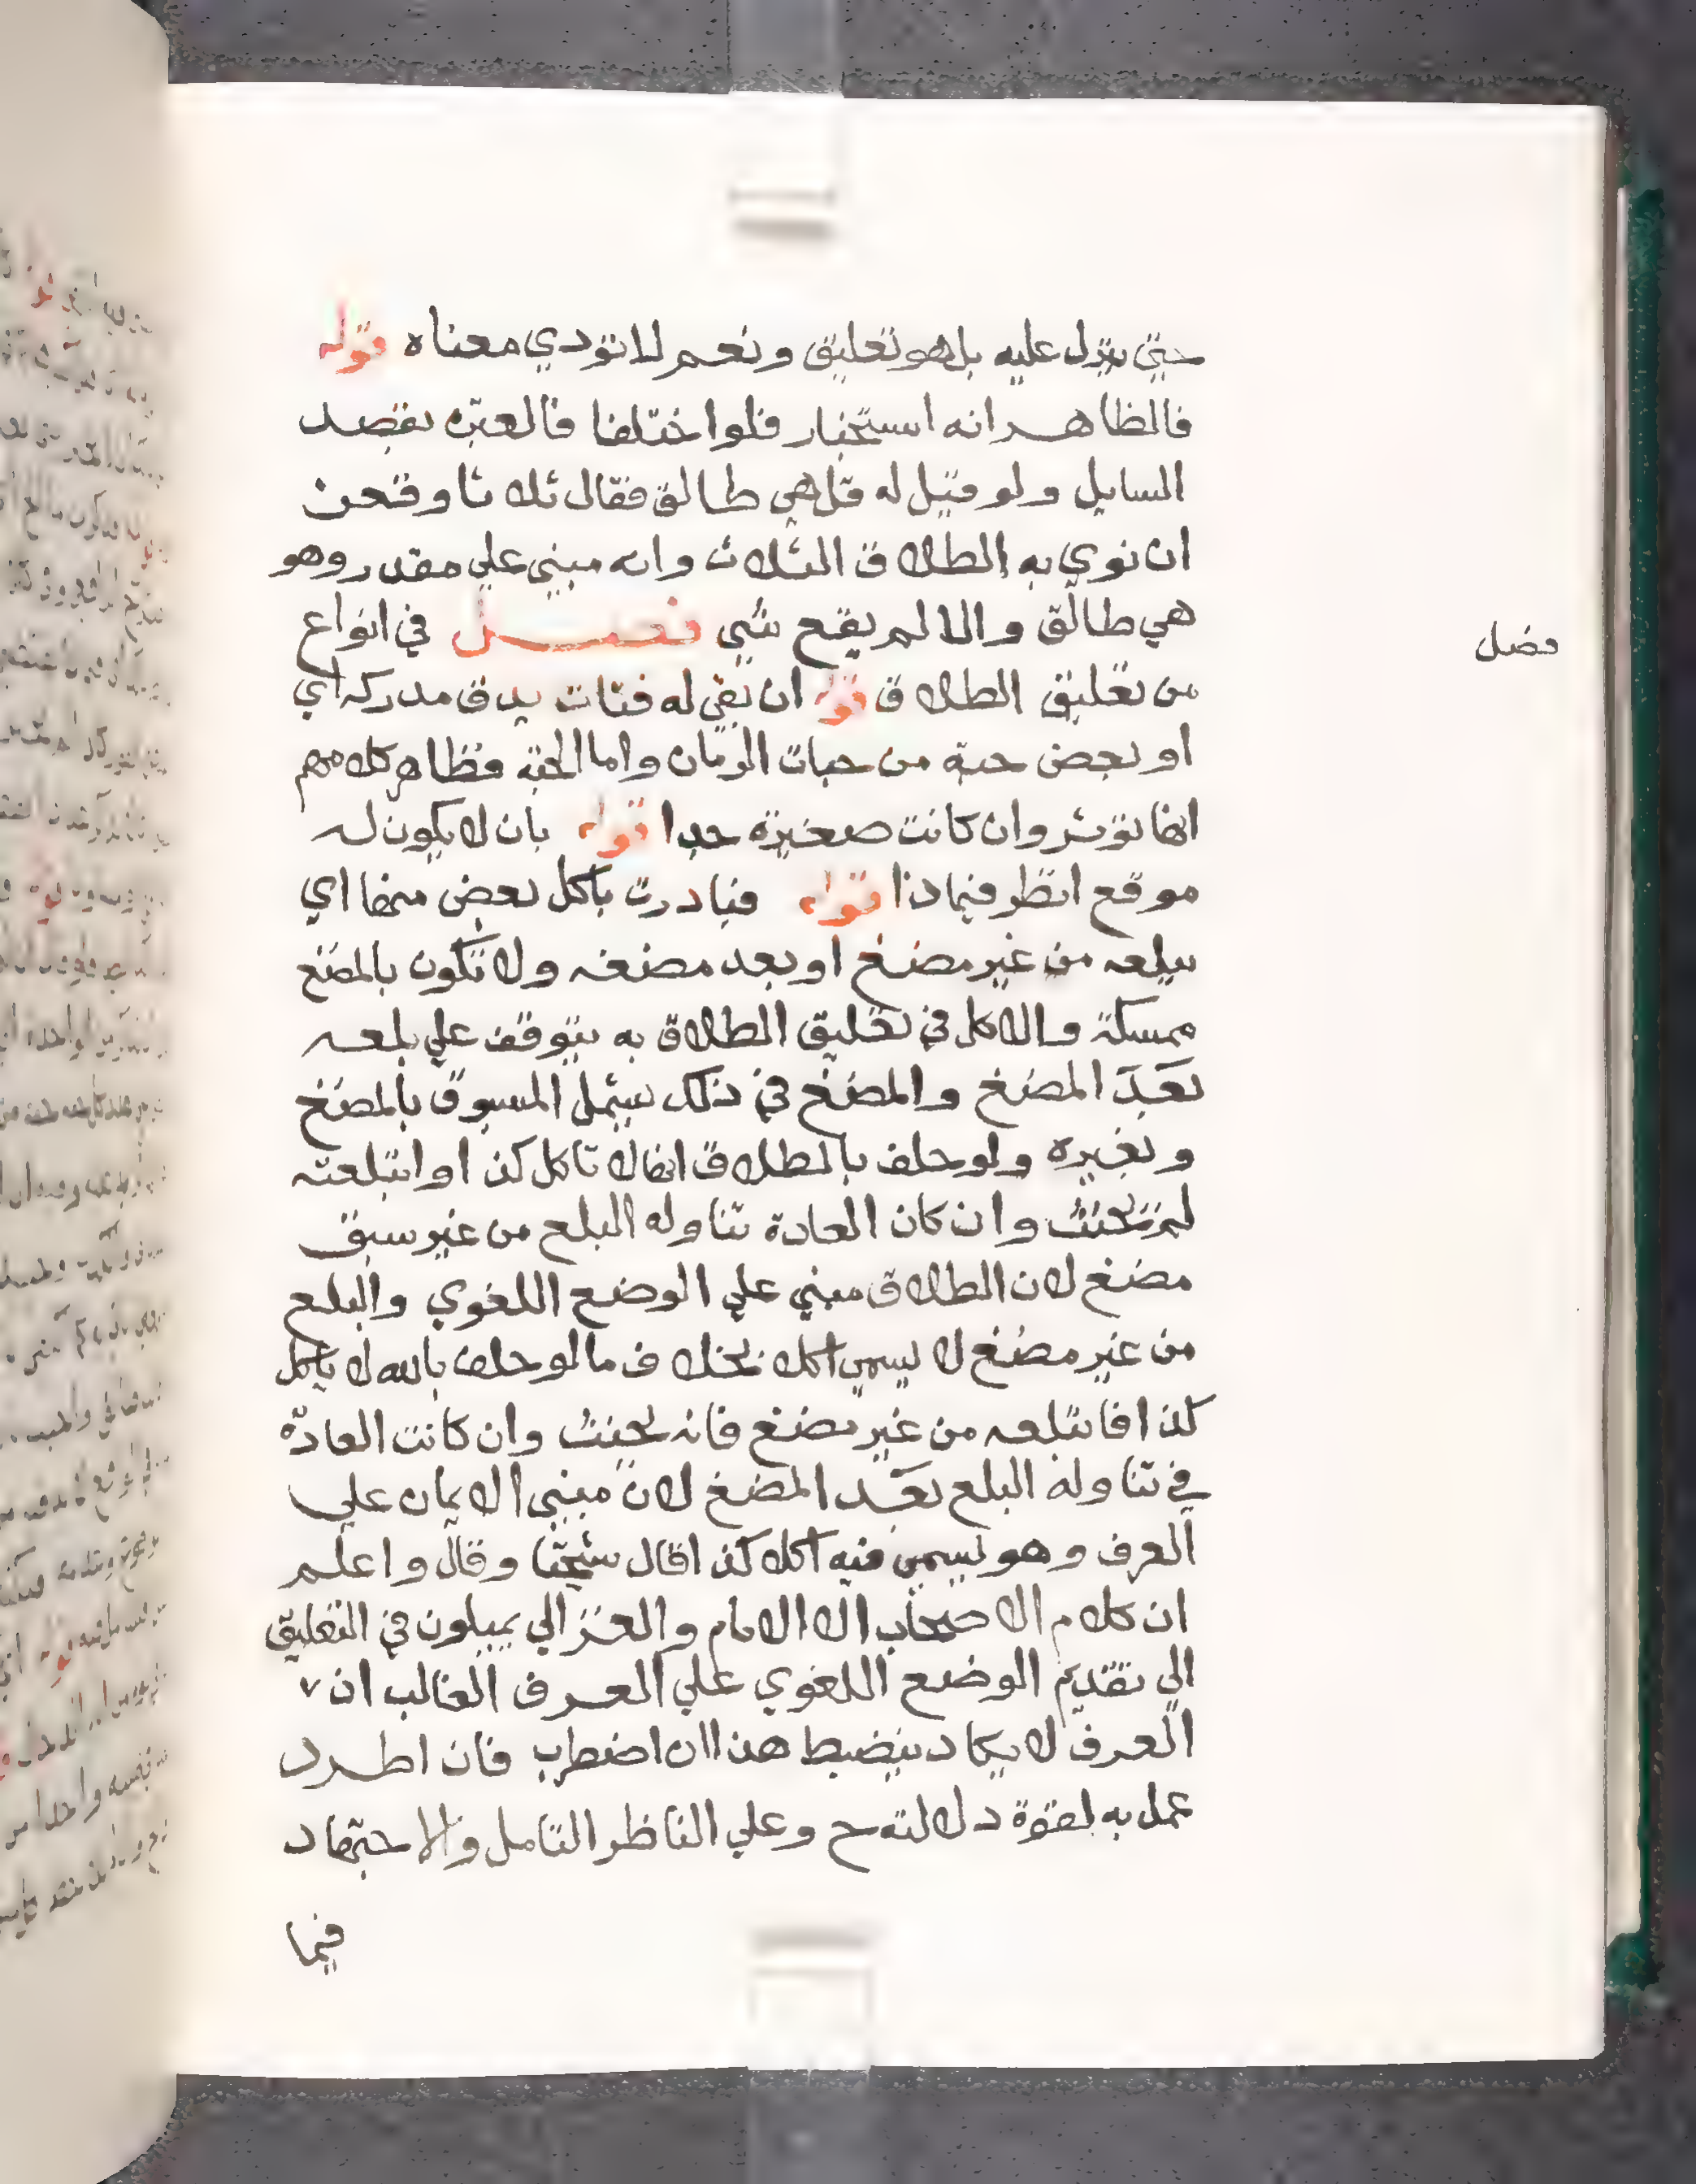 حتي ينزل عليه بل هو تعليق ونعم لا تودي معناه قوله
فالظاهر انه استخبار فلو اختلفا فالعبرة بقصد
السايل ولو قيل له قل هي طالق فقال ثلاثا وقعن
ان نوي به الطلاق الثلاث وانه مبني علي مقدر وهو
هي طالق والا لم يقع شي فصل في انواع
فصل
من تعليق الطلاق قوله ان بقي له فتات يدق مدركه اي
او بعض حبة من حبات الرمان واما الحبة فظاهر كلامهم
انها توثر وان كانت صغيرة جدا قوله بان لا يكون له
موقع انظر فيما ذا قوله فبادرت باكل بعض منها اي
ببلعه من غير مضغ او بعد مضغه ولا تكون بالمضغ
ممسكة والاكل في تعليق الطلاق به يتوقف علي بلعه
بعد المضغ والمضغ في ذلك يشمل المسبوق بالمضغ
وبغيره ولو حلف بالطلاق انها لا تاكل كذا وابتلعته
لم تحنث وان كان العادة تناوله البلع من غير سبق
مضغ لان الطلاق مبني علي الوضع اللغوي والبلع
من غير مضغ لا يسمي اكلا بخلاف ما لو حلف بالله لا ياكل
كذا فابتلعه من غير مضغ فانه يحنث وان كانت العادة
في تناوله البلع بعد المضغ لان مبني الايمان علي
العرف وهو يسمي فيه اكلا كذا قال شيخنا وقال واعلم
ان كلام الاصحاب الا الامام والغزالي يميلون في التعليق
الي تقديم الوضع اللغوي علي العرف الغالب ان
العرف لا يكاد ينضبط هذا ان اضطرب فان اطرد
عمل به لقوة دلالته ح وعلي الناظر التامل والاجتهاد
فيما